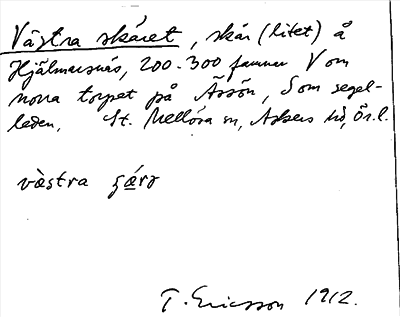 Västra skäret, skär (litet) å
Hjälmarsnäs, 200-300 famnar V om
norra torpet på Ässön, S om segel-
leden. St. Mellösa sn, Askers hd, Ör.l.
västra ʂǽrə
T. Ericsson 1912.